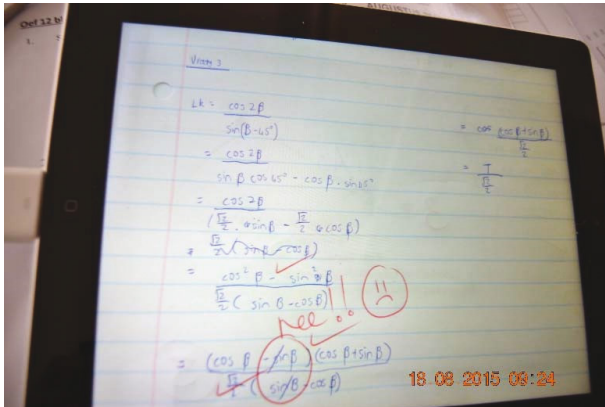 Oef 12 b
1.
Vraag 3
LK = cos 2β
sin(β-45°)
= cos 2β
sin β cos 45° - cos β . sin 45°
= cos 2β
(√2/2 . sin β - √2/2 cos β)
√2/2 (sin β - cos β)
= cos² β - sin² β
√2/2 ( sin β - cos β)
Nee !!
= (cos β - sin β) (cos β + sin β)
√2/2 ( sin β - cos β)
= cos β + sin β)
√2/2
=
√2/2
18 08 2015 09:24